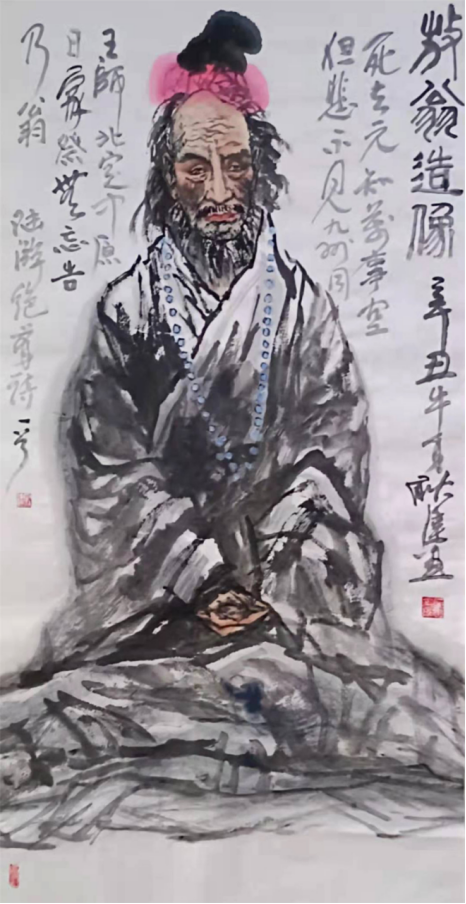 放翁造像
辛丑牛年
死去元知萬事空
但悲不见九州同
王師北定中原
日家祭無忘告
乃翁
陆游绝筆诗一首